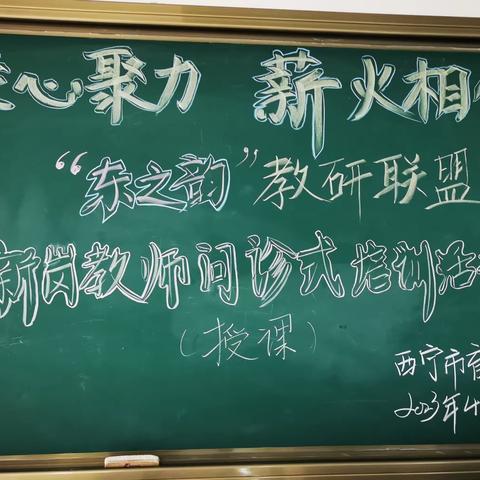 心聚力 薪火相
“东之韵”教研联盟
新岗教师问诊式培训活
（授课）
西宁市
2023年4